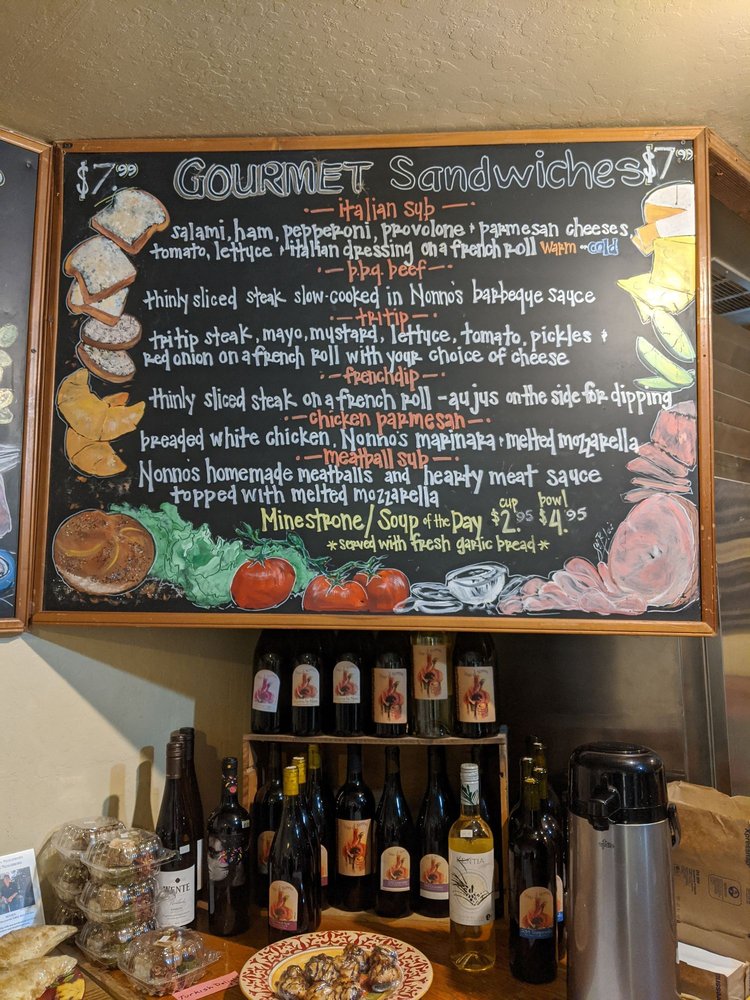 $7.99 GOURMET Sandwiches $7.99
italian sub
salami, ham, pepperoni, provolone + parmesan cheeses,
tomato, lettuce + italian dressing on a french roll warm or cold
b.b.q. beef
thinly sliced steak slow-cooked in Nonno's barbeque sauce
tri tip
tri tip steak, mayo, mustard, lettuce, tomato, pickles +
red onion on a french roll with your choice of cheese
french dip
thinly sliced steak on a french roll - au jus on the side for dipping
chicken parmesan
breaded white chicken, Nonno's marinara + melted mozzarella
meatball sub
Nonno's homemade meatballs and hearty meat sauce
topped with melted mozzarella
cup bowl
Minestrone/Soup of the Day $2.95 $4.95
*served with fresh garlic bread*
WENTE